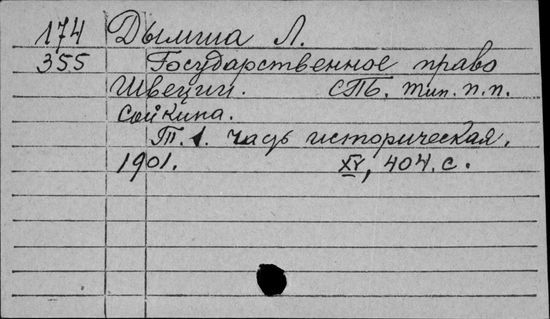 174 Дымша Л.
355 Государственное право
Швеции. СПБ. тип. п.п.
Сойкина.
Т. 1. часть историческая.
1901. XV, 404. с.